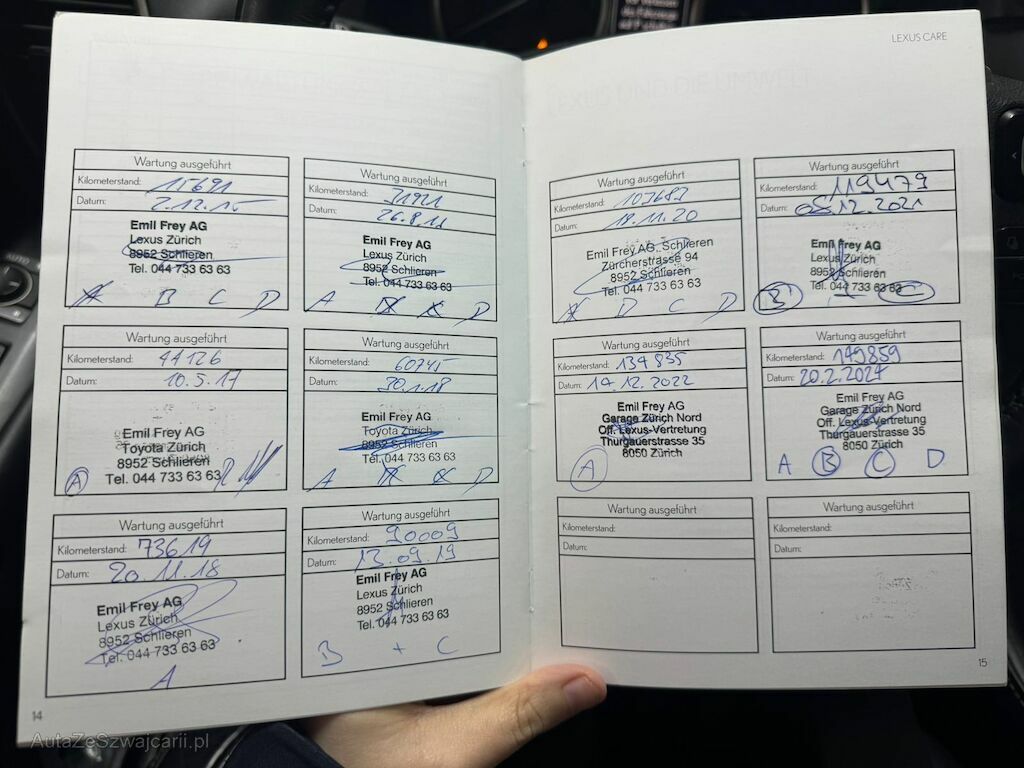 LEXUS CARE
Wartung ausgeführt
Kilometerstand: 15691
Datum: 2.12.15
Emil Frey AG
Lexus Zürich
8952 Schlieren
Tel. 044 733 63 63
A B C D
Wartung ausgeführt
Kilometerstand: 31921
Datum:
Emil Frey AG
Lexus Zürich
8952 Schlieren
Tel. 044 733 63 63
A B C D
Wartung ausgeführt
Kilometerstand: 44126
Datum: 10.5.17
Emil Frey AG
Toyota Zürich
8952 Schlieren
Tel. 044 733 63 63
A
Wartung ausgeführt
Kilometerstand: 60745
Datum: 30.1.18
Emil Frey AG
Toyota Zürich
8952 Schlieren
Tel. 044 733 63 63
A B C D
Wartung ausgeführt
Kilometerstand: 73619
Datum: 20.11.18
Emil Frey AG
Lexus Zürich
8952 Schlieren
Tel. 044 733 63 63
A
Wartung ausgeführt
Kilometerstand: 90009
Datum: 13.09.19
Emil Frey AG
Lexus Zürich
8952 Schlieren
Tel. 044 733 63 63
B + C
14
Wartung ausgeführt
Kilometerstand: 103683
Datum: 18.11.20
Emil Frey AG, Schlieren
Zürcherstrasse 94
8952 Schlieren
Tel. 044 733 63 63
Wartung ausgeführt
Kilometerstand: 119479
Datum: 03.12.2021
Emil Frey AG
Lexus Zürich
8952 Schlieren
Tel. 044 733 63 63
B + C
Wartung ausgeführt
Kilometerstand: 134835
Datum: 14.12.2022
Emil Frey AG
Garage Zürich Nord
Off. Lexus-Vertretung
Thurgauerstrasse 35
8050 Zürich
A
Wartung ausgeführt
Kilometerstand: 149859
Datum: 20.2.2024
Emil Frey AG
Garage Zürich Nord
Off. Lexus-Vertretung
Thurgauerstrasse 35
8050 Zürich
A B C D
Wartung ausgeführt
Kilometerstand:
Datum:
Wartung ausgeführt
Kilometerstand:
Datum:
15
AutaZeSzwajcarii.pl